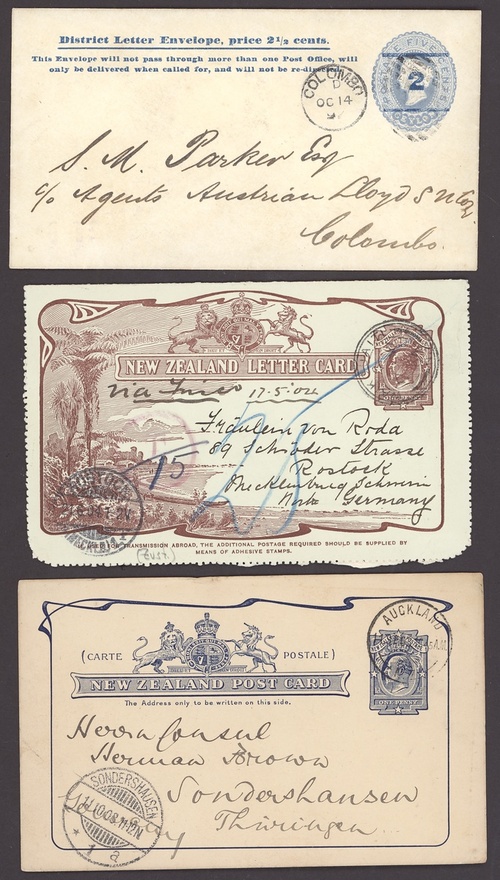 District Letter Envelope, price 2½ cents.
This Envelope will not pass through more than one Post Office, will
only be delivered when called for, and will not be re-dire
FIVE CENTS
2
COLOMBO
D
OC 14
S. M. Parker Esq
c/o Agents Austrian Lloyd S N Co.
Colombo.
NEW ZEALAND LETTER CARD
ONE PENNY
via Frisco 17.5.04
Fräulein von Roda
89 Schröder Strasse
15
Rostock
Mecklenburg Schwerin
Germany
25
ROSTOCK
(MECKLB)
FOR TRANSMISSION ABROAD, THE ADDITIONAL POSTAGE REQUIRED SHOULD BE SUPPLIED BY
MEANS OF ADHESIVE STAMPS.
AUCKLAND
(CARTE POSTALE)
NEW ZEALAND POST CARD
ONE PENNY
The Address only to be written on this side.
Herrn Consul
Herman Brown
Sondershausen
Thüringen
Germany
SONDERSHAUSEN
11.10.08.11-12V.
* 1 a